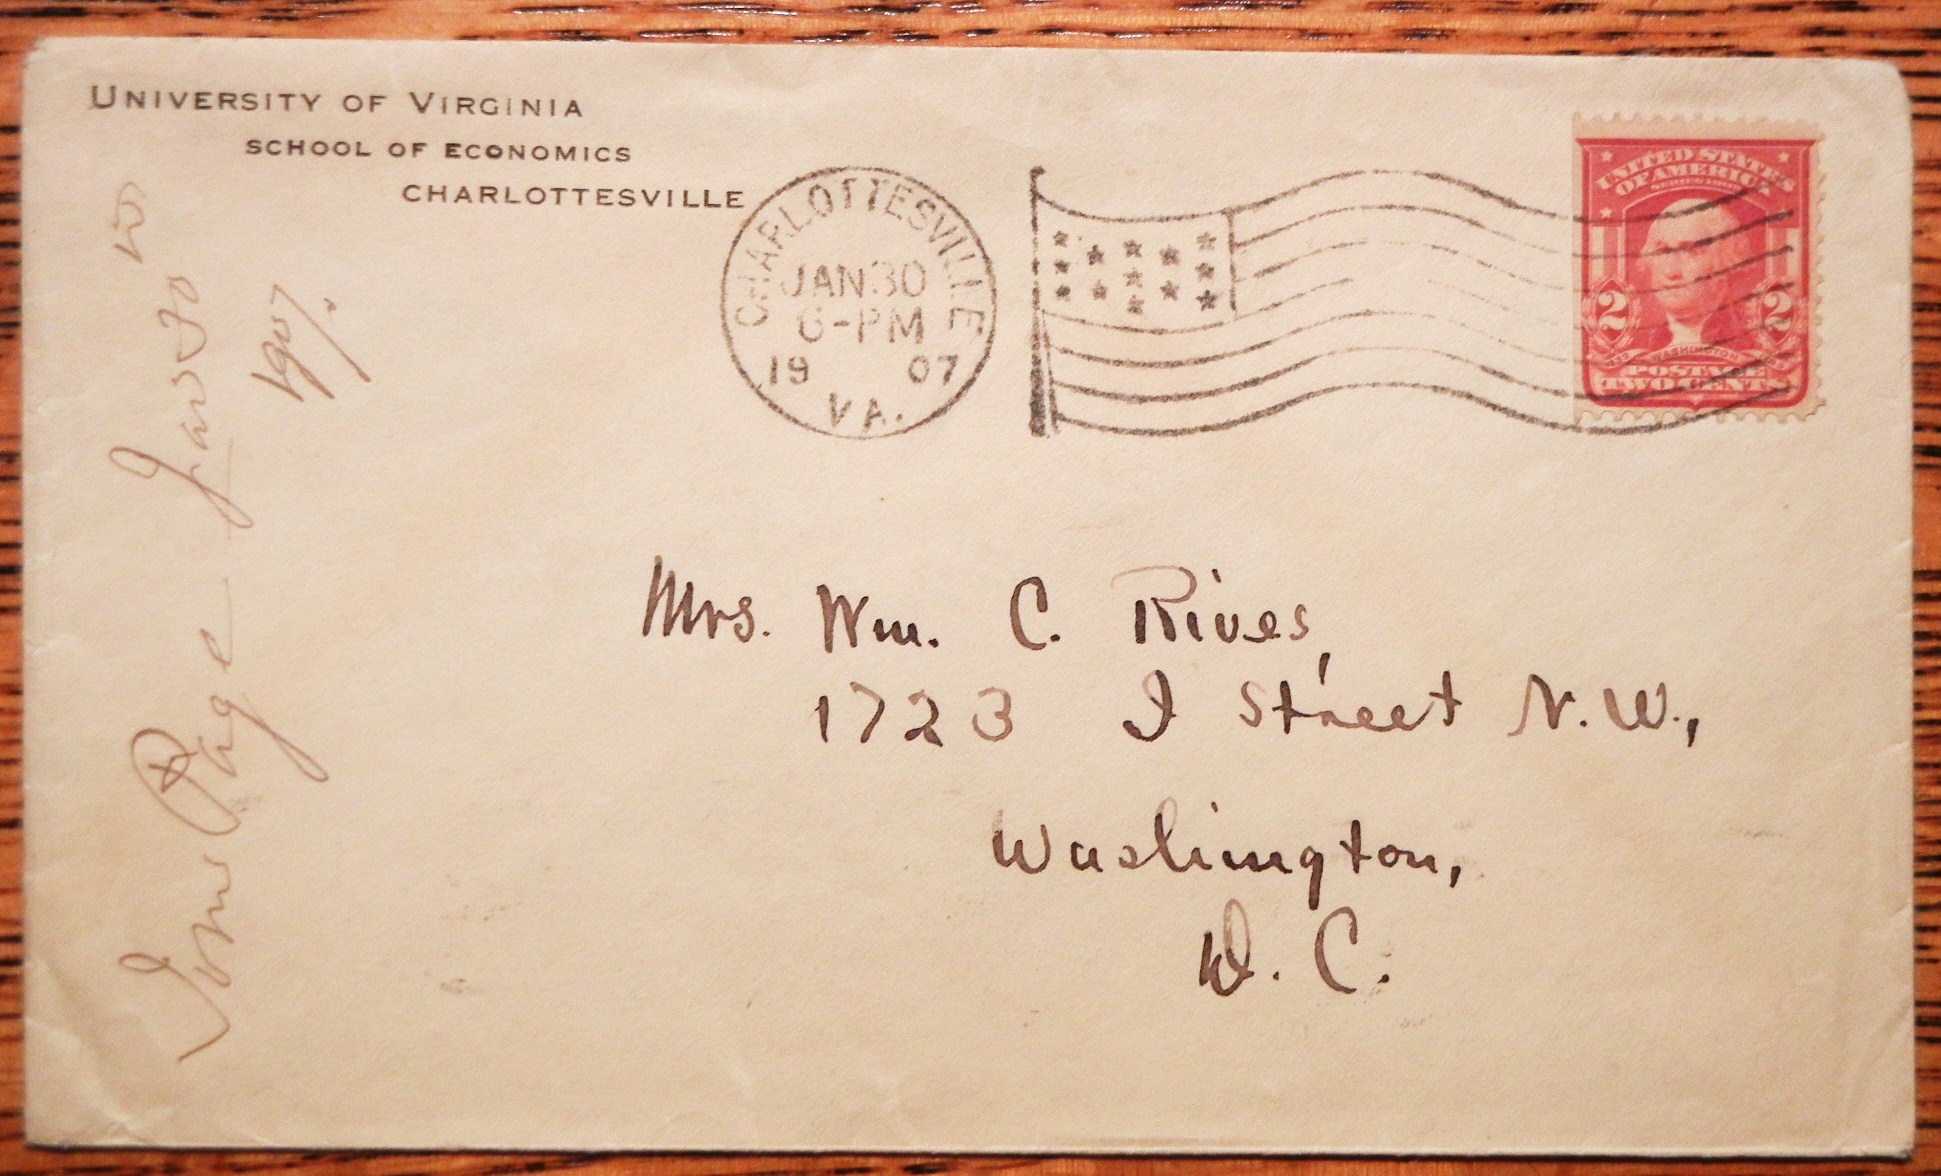 UNIVERSITY OF VIRGINIA
SCHOOL OF ECONOMICS
CHARLOTTESVILLE
CHARLOTTESVILLE
JAN 30
6-PM
19 07
VA.
UNITED STATES
OF AMERICA
SERIES 1902
2 2
WASHINGTON
POSTAGE
TWO CENTS
Mrs. Wm. C. Rives,
1723 I Street N.W.,
Washington,
D. C.
Page
1907.